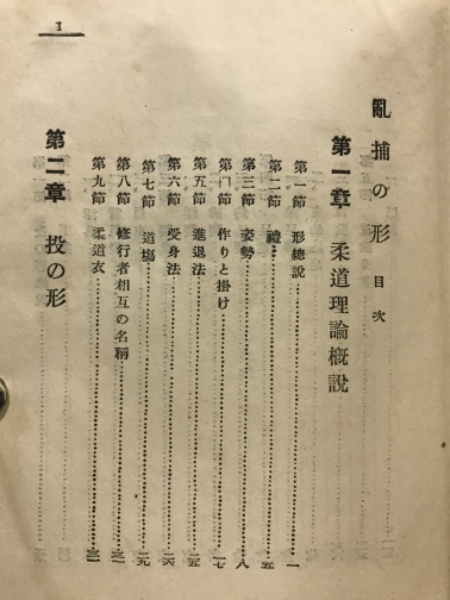 1
亂捕の形 目次
第一章 柔道理論概説
第一節 形總説 一
第二節 禮 五
第三節 姿勢 八
第四節 作りと掛け 一七
第五節 進退法 二五
第六節 受身法 二六
第七節 道場 二九
第八節 修行者相互の名稱
第九節 柔道衣
第二章 投の形